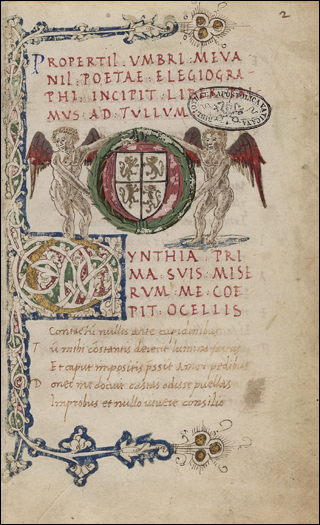 2
PROPERTII · VMBRI · MEVA
NII · POETAE · ELEGIOGRA
PHI · INCIPIT ·
MVS · AD · TVLLVM
CYNTHIA · PRI
MA · SVIS · MISE
RVM · ME · COE
PIT · OCELLIS
Contactū nullis ante cupidinibus
T ū mihi cōstantis deiecit lumina fastus
Et caput impositis pssit Amor pedibus
D onec me docuit castas odisse puellas
Improbus et nullo vivere consilio